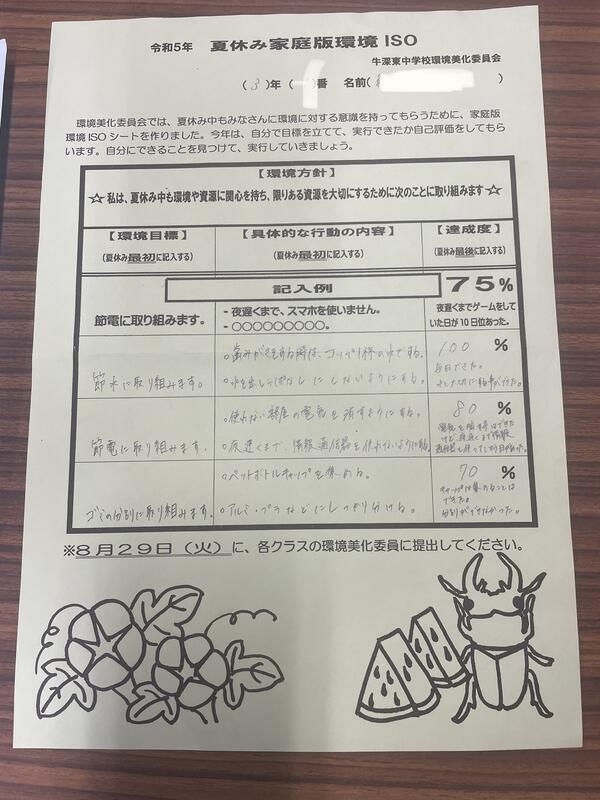 令和5年 夏休み家庭版環境ISO
牛深東中学校環境美化委員会
(3)年( )番 名前( )
環境美化委員会では、夏休み中もみなさんに環境に対する意識を持ってもらうために、家庭版
環境ISOシートを作りました。今年は、自分で目標を立てて、実行できたか自己評価をしてもら
います。自分にできることを見つけて、実行していきましょう。
【環境方針】
☆私は、夏休み中も環境や資源に関心を持ち、限りある資源を大切にするために次のことに取り組みます☆
【環境目標】 【具体的な行動の内容】 【達成度】
(夏休み最初に記入する) (夏休み最初に記入する) (夏休み最後に記入する)
記入例 75%
節電に取り組みます。
・夜遅くまで、スマホを使いません。
・○○○○○○○○○。
夜遅くまでゲームをして
いた日が10日位あった。
節水に取り組みます。
○歯みがきをする時は、コップ1杯の水でする。
○水を出しっぱなしにしないようにする。
100 %
毎日できた。
節電に取り組みます。
○使わない部屋の電気を消すようにする。
○夜遅くまで、情報通信器を使わないように
80 %
電気を消す事はできた
けど、夜遅くまで情報
ゴミの分別に取り組みます。
○ペットボトルキャップを集める。
○アルミ・プラなどにしっかり分ける。
70 %
キャップは集めることは
できた。
※8月29日(火)に、各クラスの環境美化委員に提出してください。